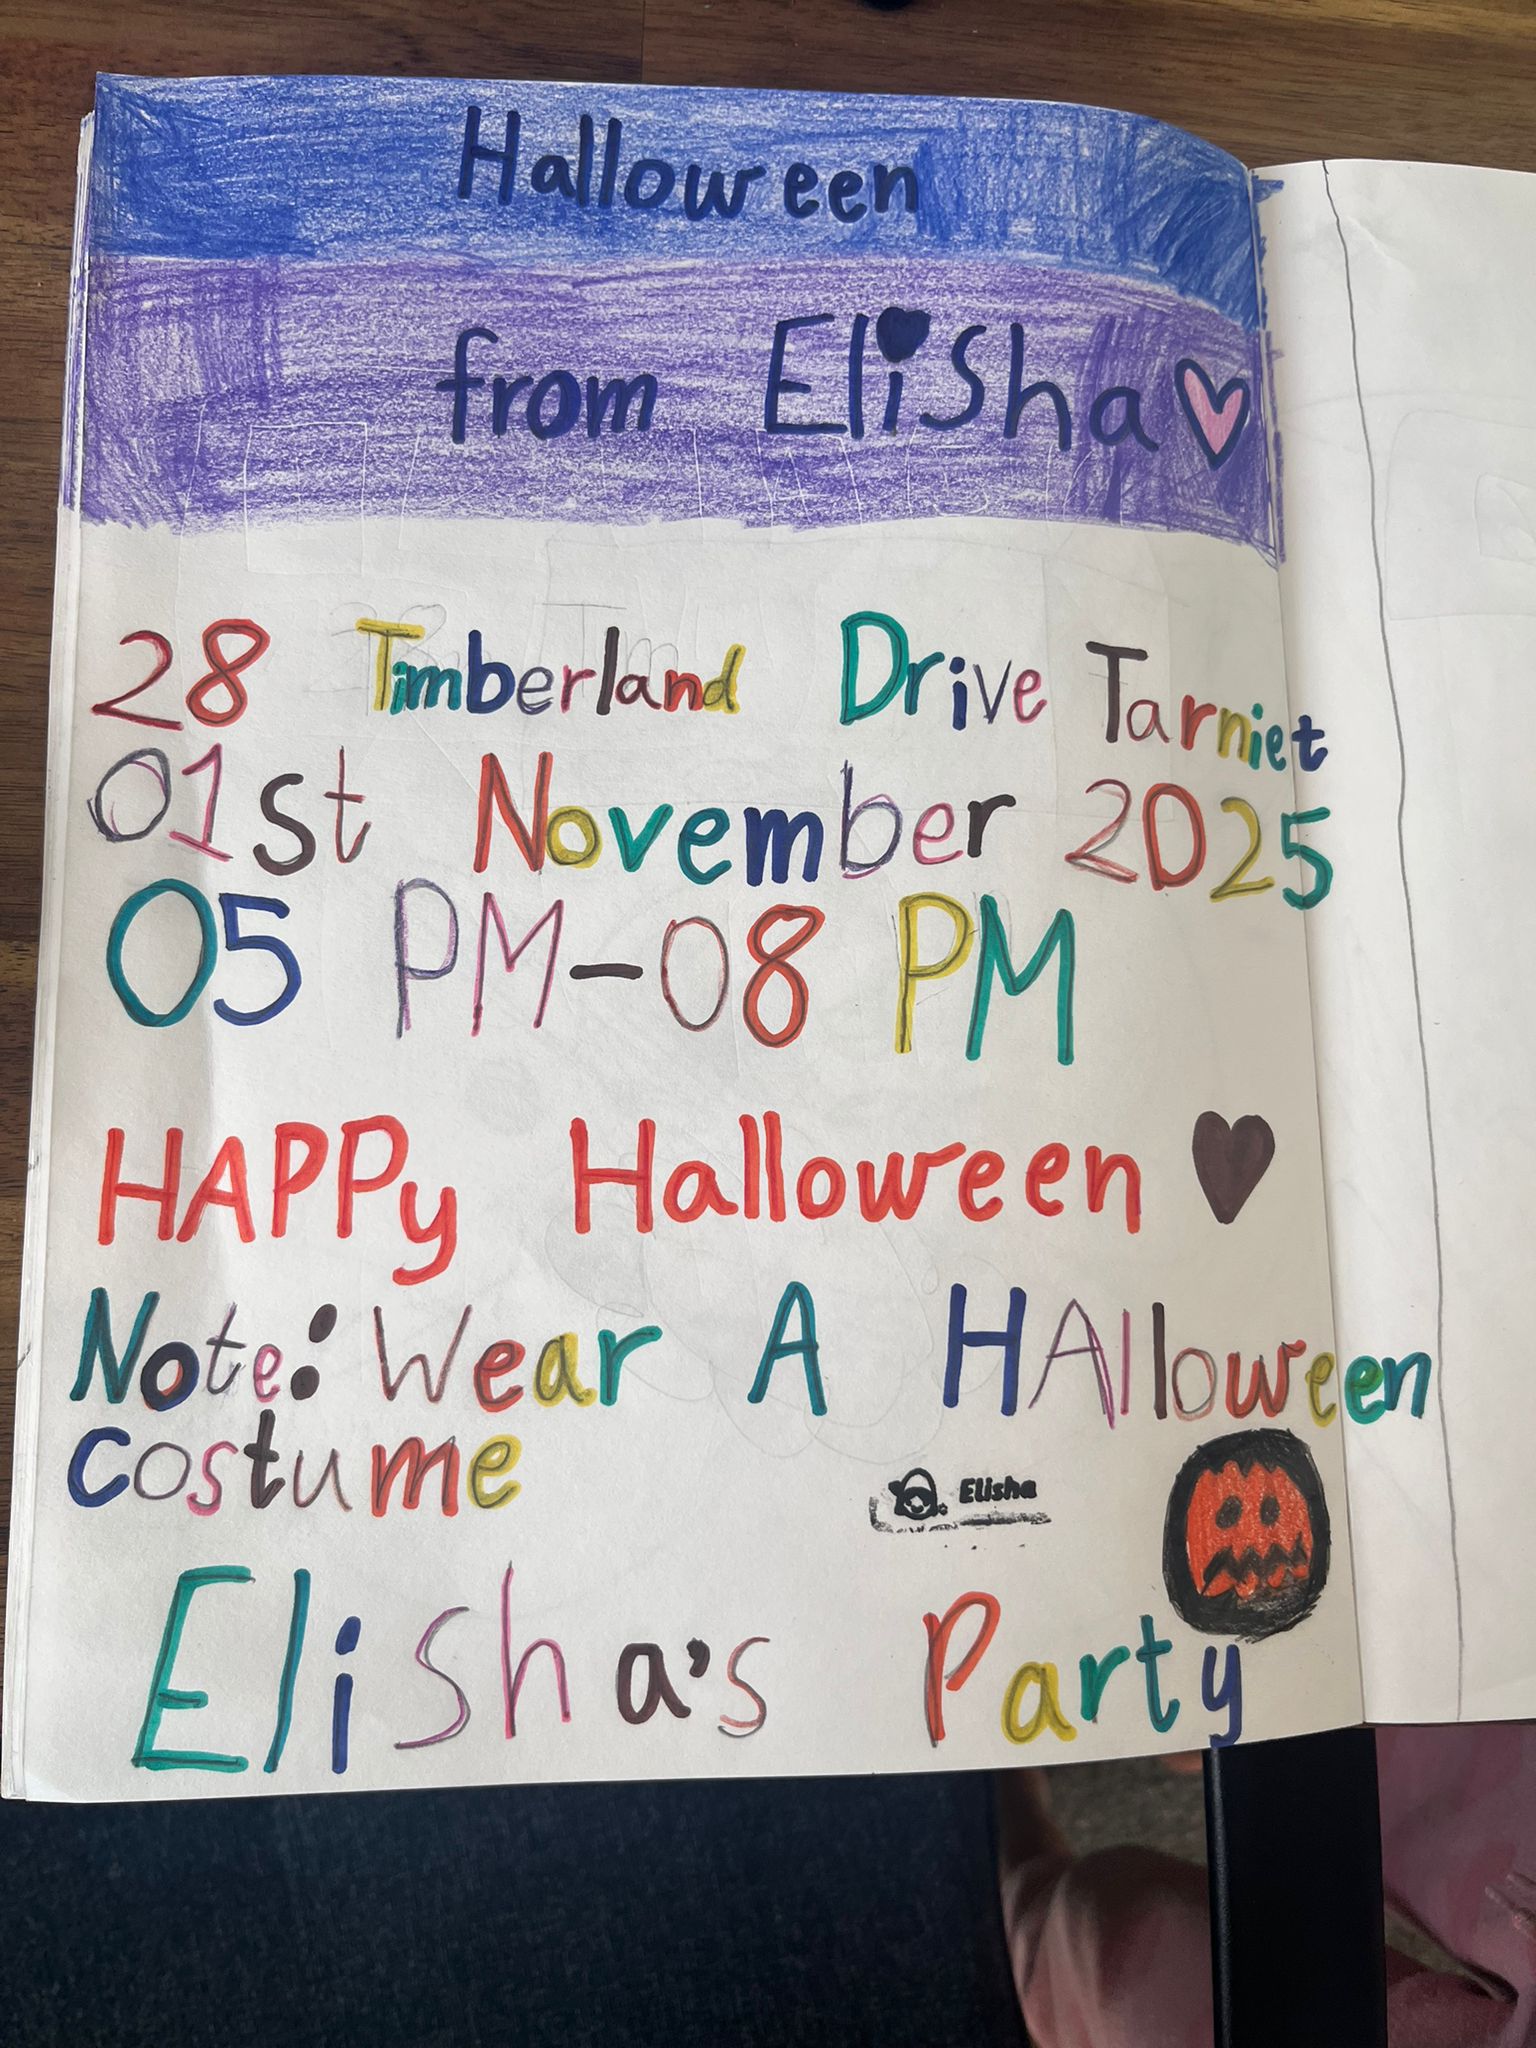 Halloween
from Elisha
28 Timberland Drive Tarniet
01st November 2025
05 PM-08 PM
HAPPy Halloween
Note: Wear A HAlloween
costume
Elisha
Elisha's Party